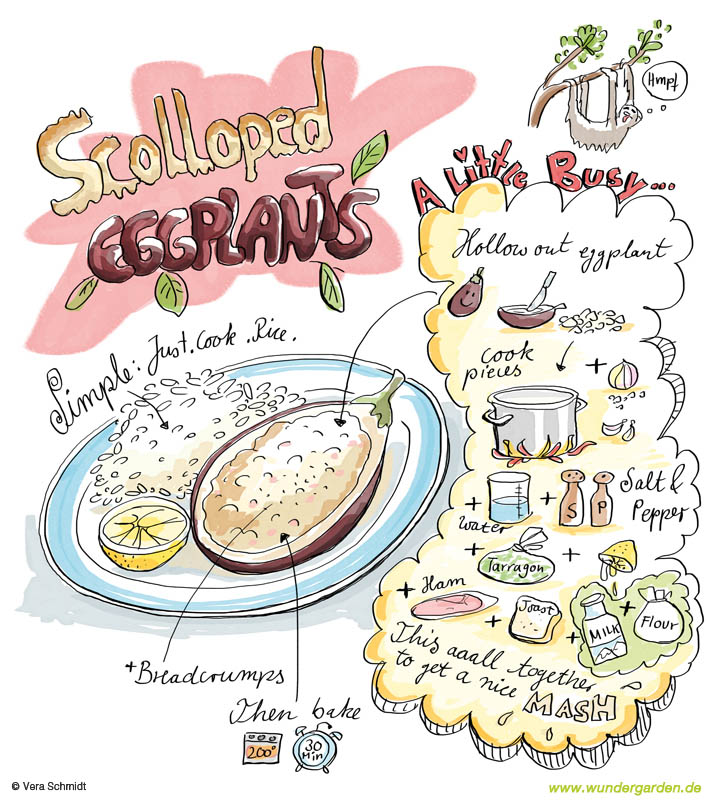 Scolloped
EGGPLANTS
Hmpf
A Little Busy...
Hollow out eggplant
cook
pieces
+
Simple: Just. Cook. Rice.
+
water
+
S P
Salt &
Pepper
+
Tarragon
+
+ Ham
+
Toast
+
MILK
+
Flour
This aaall together
to get a nice MASH
+Breadcrumps
Then bake
200°
30
Min
© Vera Schmidt
www.wundergarden.de